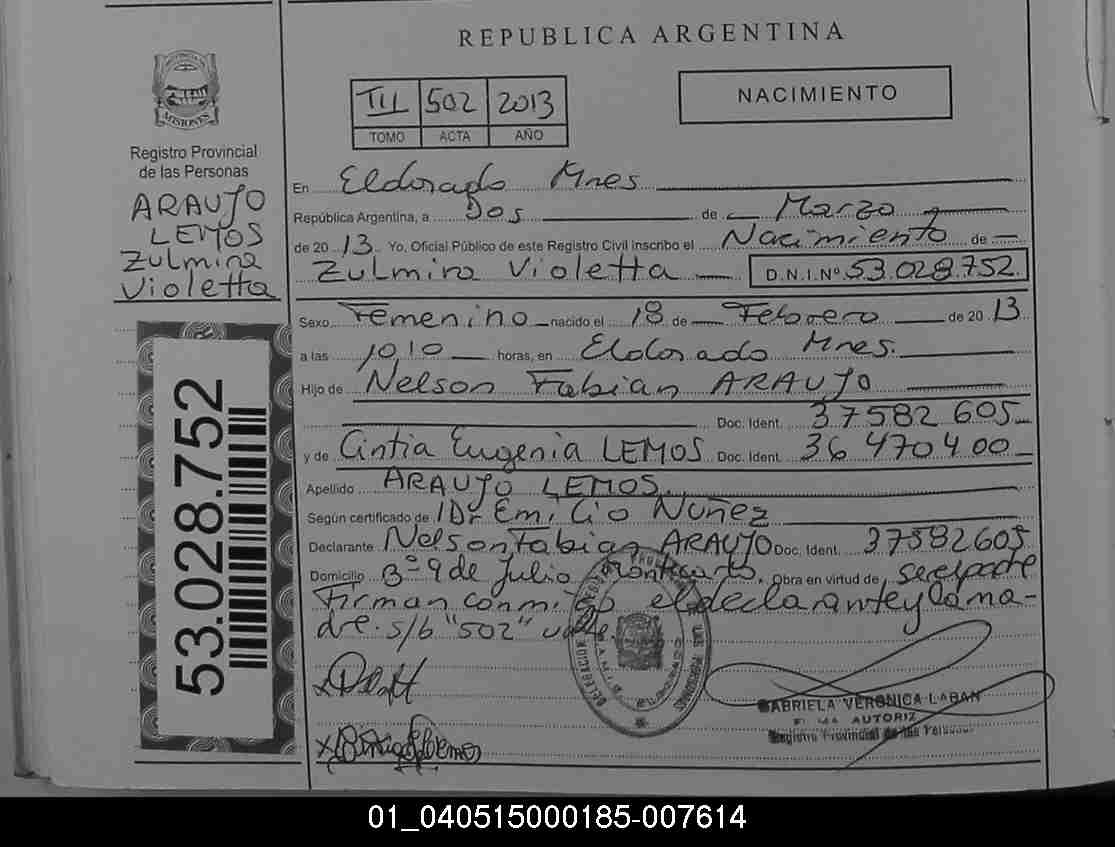 REPUBLICA ARGENTINA
MISIONES
Registro Provincial
de las Personas
ARAUJO
LEMOS
Zulmira
Violetta
53.028.752
III 502 2013
TOMO ACTA AÑO
NACIMIENTO
En Eldorado Mnes
República Argentina, a Dos de Marzo
de 2013 Yo, Oficial Público de este Registro Civil inscribo el Nacimiento de
Zulmira Violetta D.N.I.Nº 53.028.752
Sexo Femenino nacido el 18 de Febrero de 2013
a las 1010 horas, en Eldorado Mnes.
Hijo de Nelson Fabian ARAUJO
Doc. Ident. 37582 605
y de Cintia Eugenia LEMOS Doc. Ident. 36 470400
Apellido ARAUJO LEMOS
Según certificado de Dr Emilio Nuñez
Declarante Nelson Fabian ARAUJO Doc. Ident. 37582605
Domicilio Bº 9 de Julio Montecarlo. Obra en virtud de ser el padre
Firman conmigo el declarante y la ma-
dre. s/b "502" vale.
GABRIELA VERONICA LABAN
FIRMA AUTORIZ
Registro Provincial de las Personas
01_040515000185-007614